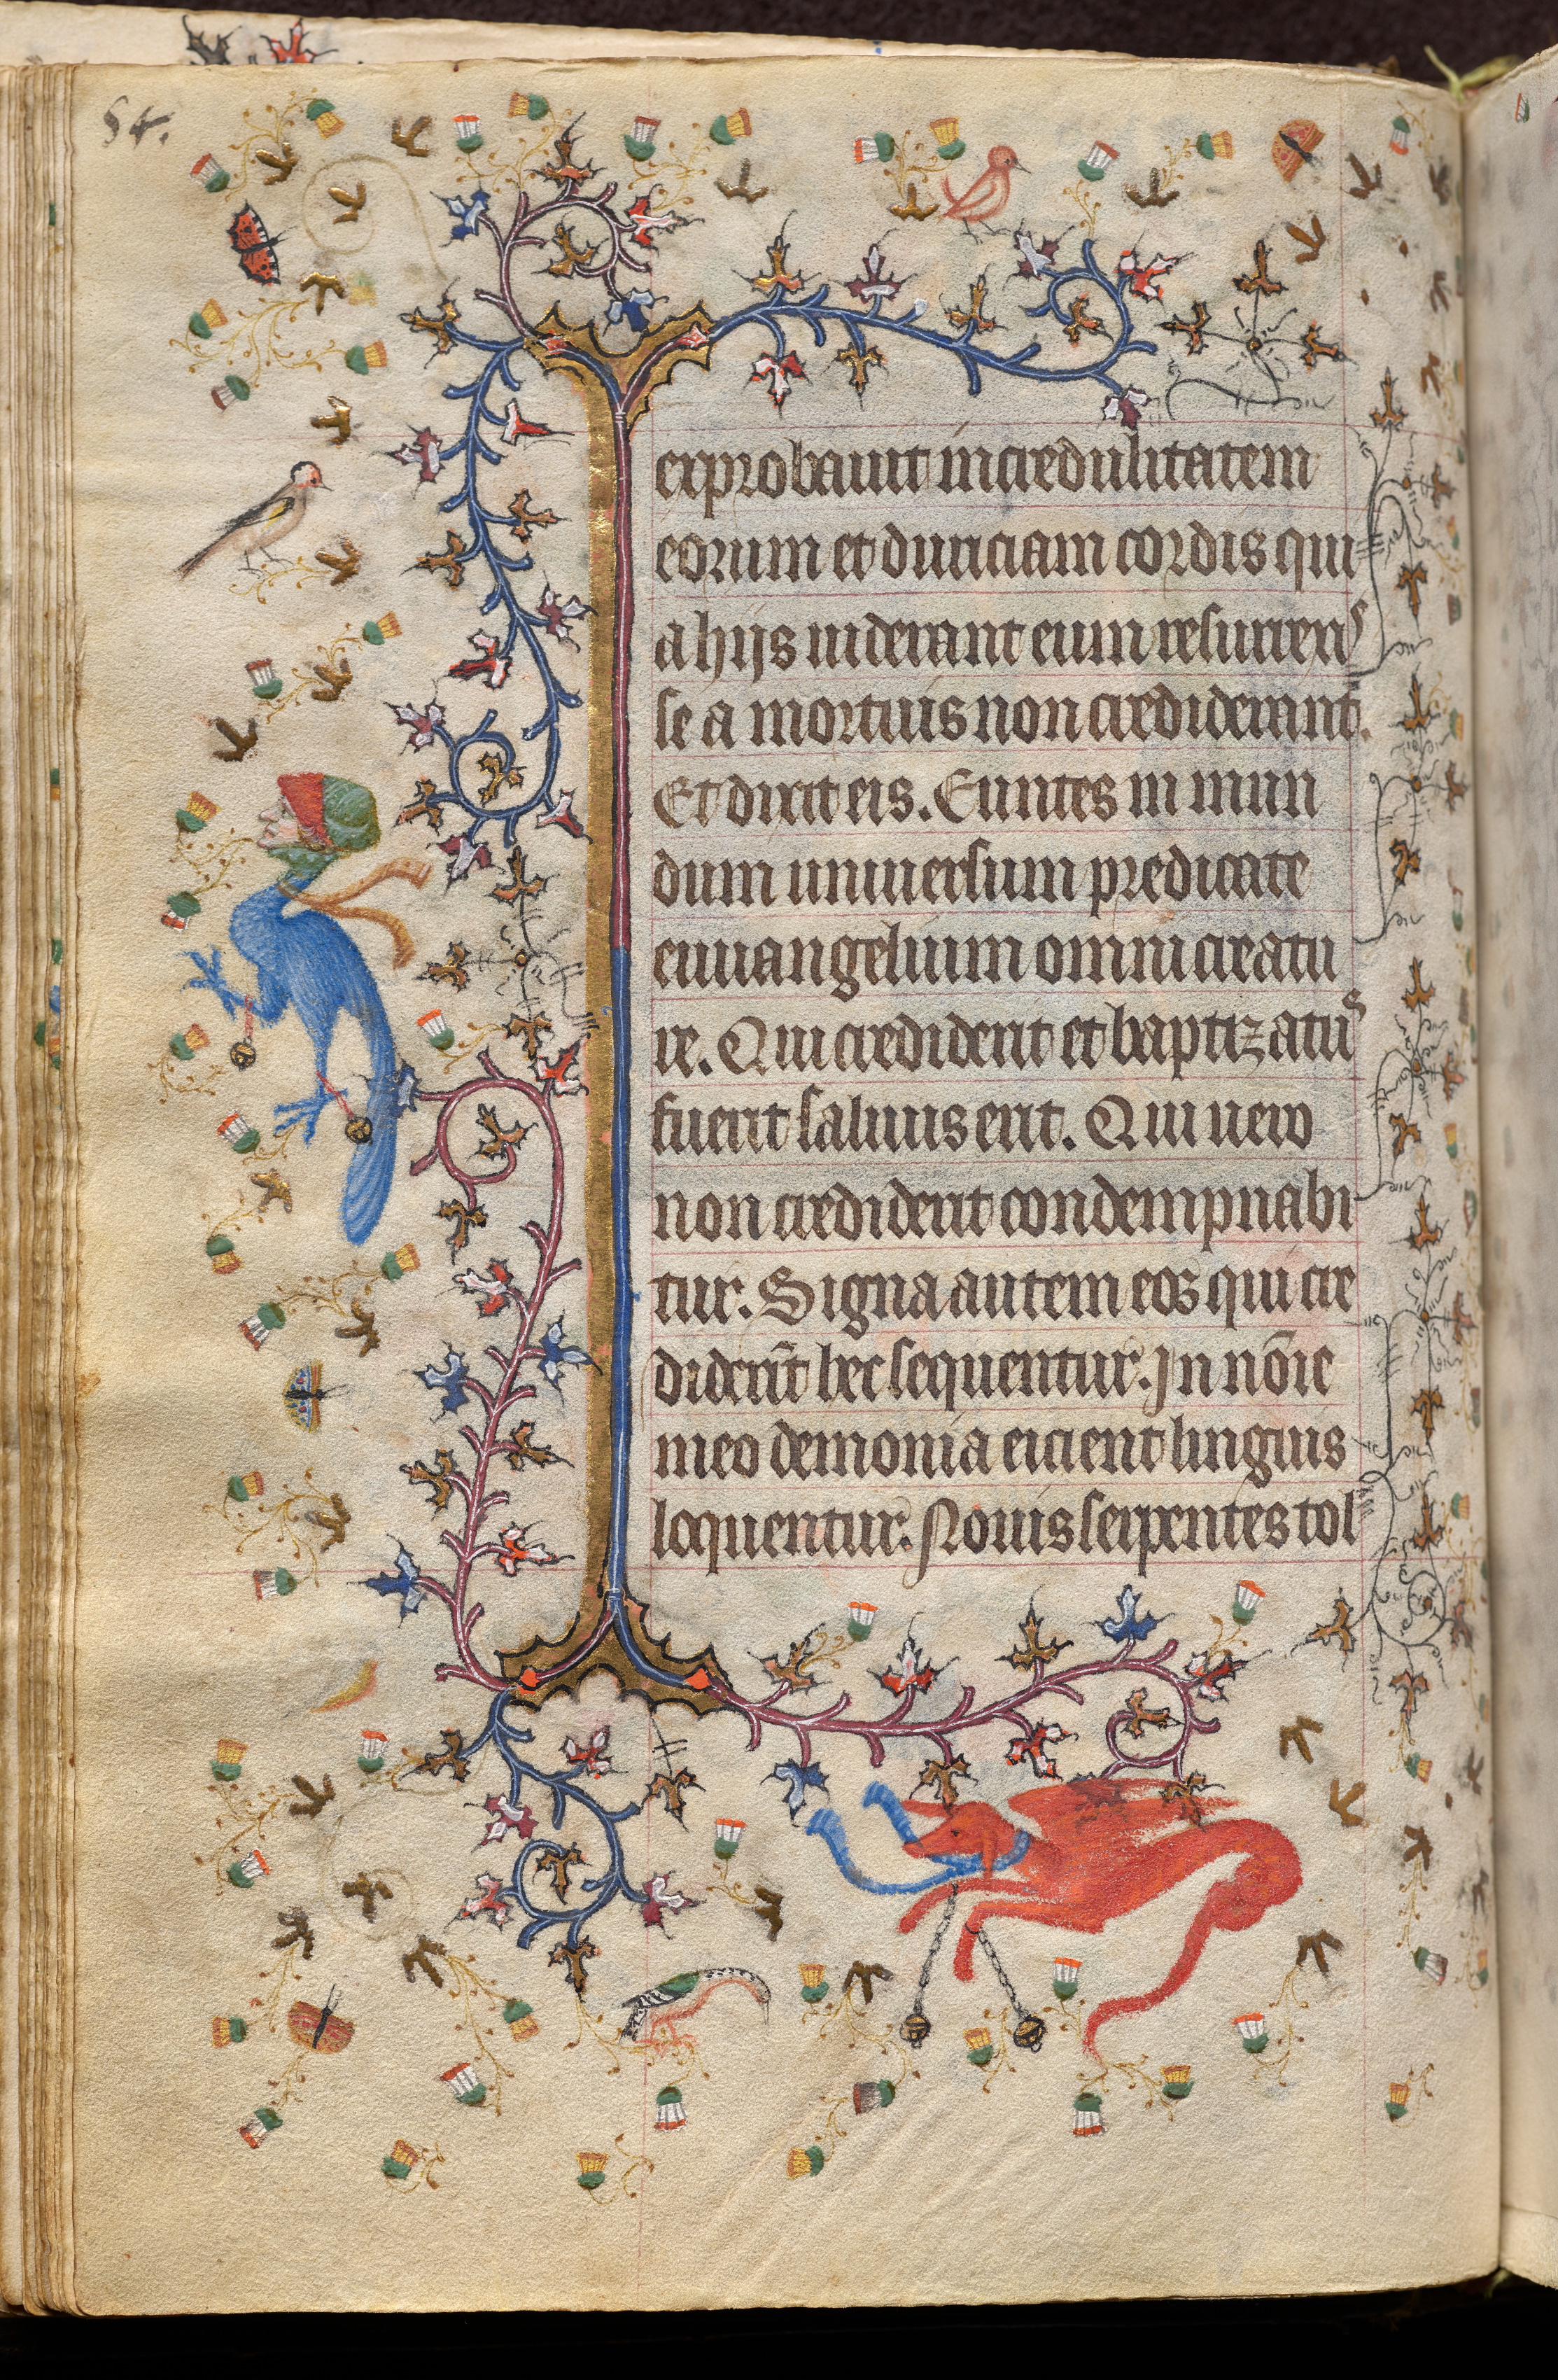 54.
exprobauit incredulitatem
eorum et duriciam cordis qui
a hijs uiderant eum resurrex
se a mortuis non crediderunt.
Et dixit eis. Euntes in mun
dum uniuersum predicate
euuangelium omni creatu
re. Qui crediderit et baptizatus
fuerit saluus erit. Qui uero
non crediderit condempnabi
tur. Signa autem eos qui cre
diderīt hec sequentur. In nōie
meo demonia eicient linguis
loquentur. Nouis serpentes tol